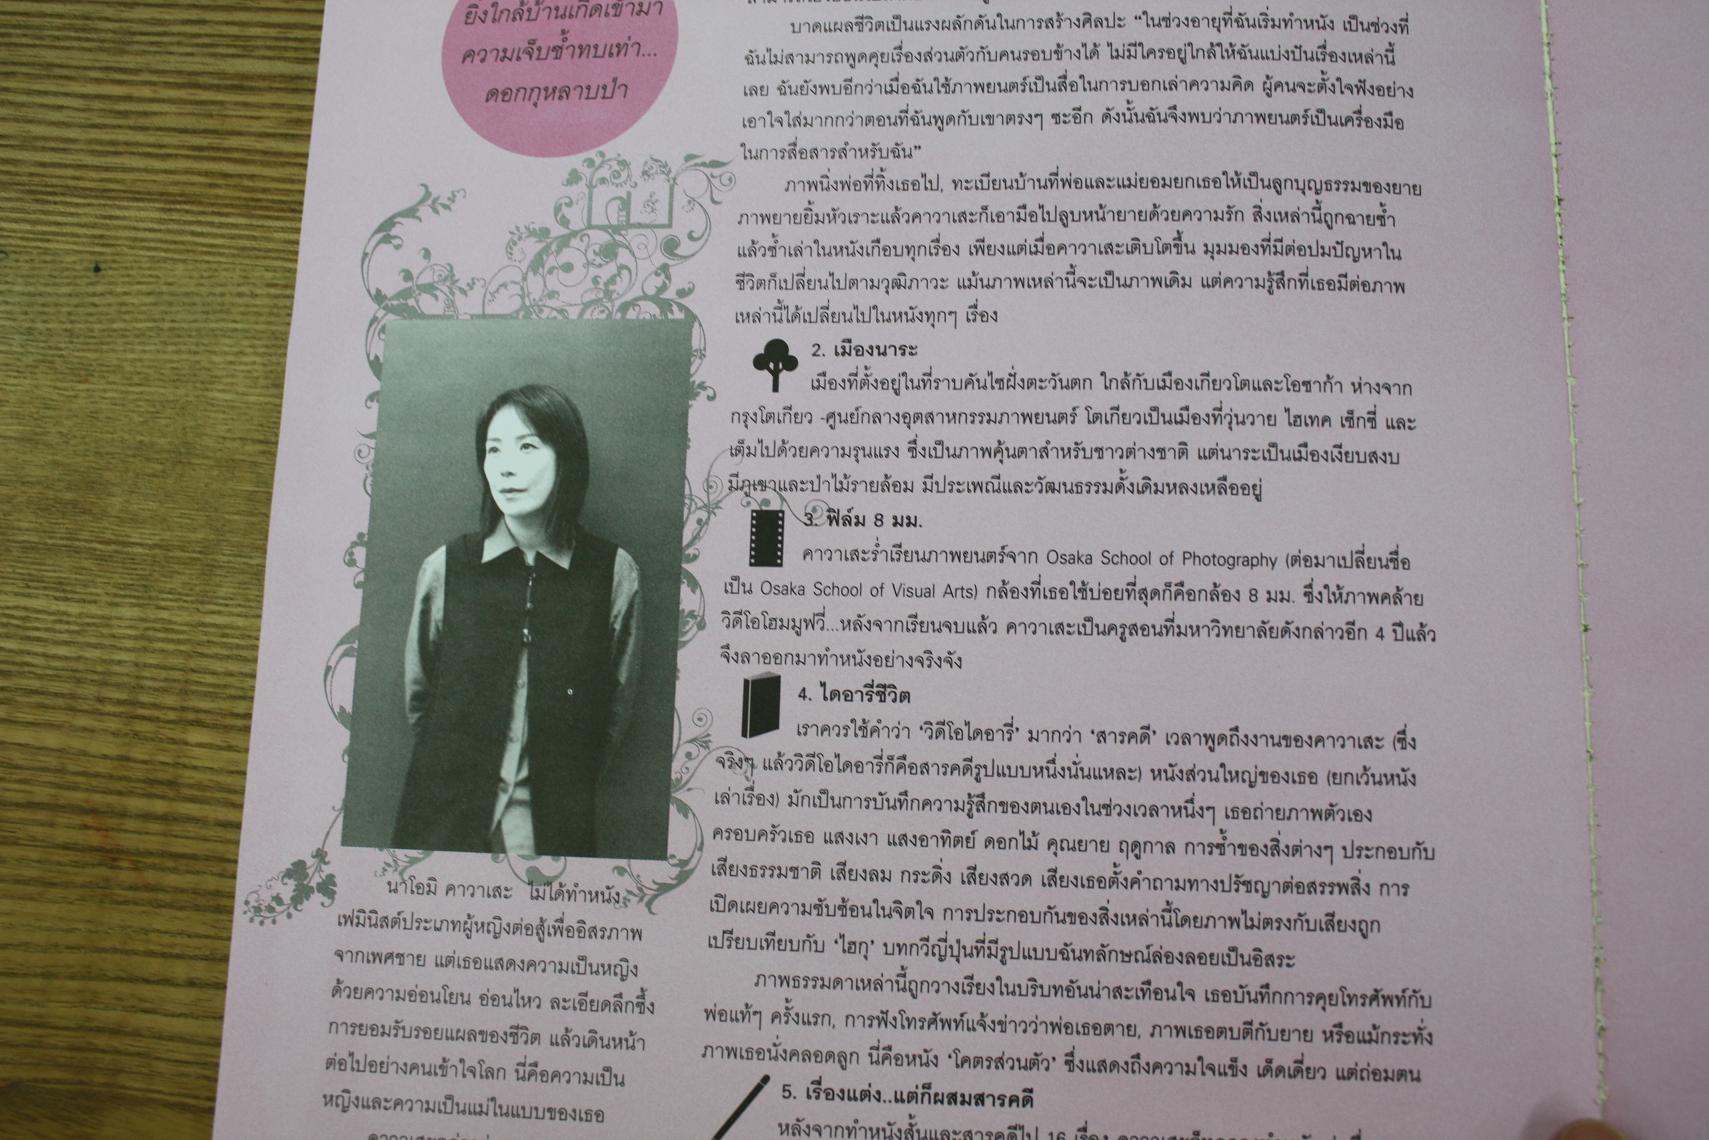 ยิ่งใกล้บ้านเกิดเข้ามา
ความเจ็บช้ำทบเท่า...
ดอกกุหลาบป่า
บาดแผลชีวิตเป็นแรงผลักดันในการสร้างศิลปะ “ในช่วงอายุที่ฉันเริ่มทำหนัง เป็นช่วงที่
ฉันไม่สามารถพูดคุยเรื่องส่วนตัวกับคนรอบข้างได้ ไม่มีใครอยู่ใกล้ให้ฉันแบ่งปันเรื่องเหล่านี้
เลย ฉันยังพบอีกว่าเมื่อฉันใช้ภาพยนตร์เป็นสื่อในการบอกเล่าความคิด ผู้คนจะตั้งใจฟังอย่าง
เอาใจใส่มากกว่าตอนที่ฉันพูดกับเขาตรงๆ ซะอีก ดังนั้นฉันจึงพบว่าภาพยนตร์เป็นเครื่องมือ
ในการสื่อสารสำหรับฉัน”
ภาพนิ่งพ่อที่ทิ้งเธอไป, ทะเบียนบ้านที่พ่อและแม่ยอมยกเธอให้เป็นลูกบุญธรรมของยาย
ภาพยายยิ้มหัวเราะแล้วคาวาเสะก็เอามือไปลูบหน้ายายด้วยความรัก สิ่งเหล่านี้ถูกฉายซ้ำ
แล้วซ้ำเล่าในหนังเกือบทุกเรื่อง เพียงแต่เมื่อคาวาเสะเติบโตขึ้น มุมมองที่มีต่อปมปัญหาใน
ชีวิตก็เปลี่ยนไปตามวุฒิภาวะ แม้นภาพเหล่านี้จะเป็นภาพเดิม แต่ความรู้สึกที่เธอมีต่อภาพ
เหล่านี้ได้เปลี่ยนไปในหนังทุกๆ เรื่อง
2. เมืองนาระ
เมืองที่ตั้งอยู่ในที่ราบคันไซฝั่งตะวันตก ใกล้กับเมืองเกียวโตและโอซาก้า ห่างจาก
กรุงโตเกียว -ศูนย์กลางอุตสาหกรรมภาพยนตร์ โตเกียวเป็นเมืองที่วุ่นวาย ไฮเทค เซ็กซี่ และ
เต็มไปด้วยความรุนแรง ซึ่งเป็นภาพคุ้นตาสำหรับชาวต่างชาติ แต่นาระเป็นเมืองเงียบสงบ
มีภูเขาและป่าไม้รายล้อม มีประเพณีและวัฒนธรรมดั้งเดิมหลงเหลืออยู่
3. ฟิล์ม 8 มม.
คาวาเสะร่ำเรียนภาพยนตร์จาก Osaka School of Photography (ต่อมาเปลี่ยนชื่อ
เป็น Osaka School of Visual Arts) กล้องที่เธอใช้บ่อยที่สุดก็คือกล้อง 8 มม. ซึ่งให้ภาพคล้าย
วิดีโอโฮมมูฟวี่...หลังจากเรียนจบแล้ว คาวาเสะเป็นครูสอนที่มหาวิทยาลัยดังกล่าวอีก 4 ปีแล้ว
จึงลาออกมาทำหนังอย่างจริงจัง
4. ไดอารี่ชีวิต
เราควรใช้คำว่า ‘วิดีโอไดอารี่’ มากว่า ‘สารคดี’ เวลาพูดถึงงานของคาวาเสะ (ซึ่ง
จริงๆ แล้ววิดีโอไดอารี่ก็คือสารคดีรูปแบบหนึ่งนั่นแหละ) หนังส่วนใหญ่ของเธอ (ยกเว้นหนัง
เล่าเรื่อง) มักเป็นการบันทึกความรู้สึกของตนเองในช่วงเวลาหนึ่งๆ เธอถ่ายภาพตัวเอง
ครอบครัวเธอ แสงเงา แสงอาทิตย์ ดอกไม้ คุณยาย ฤดูกาล การซ้ำของสิ่งต่างๆ ประกอบกับ
เสียงธรรมชาติ เสียงลม กระดิ่ง เสียงสวด เสียงเธอตั้งคำถามทางปรัชญาต่อสรรพสิ่ง การ
เปิดเผยความซับซ้อนในจิตใจ การประกอบกันของสิ่งเหล่านี้โดยภาพไม่ตรงกับเสียงถูก
เปรียบเทียบกับ ‘ไฮกุ’ บทกวีญี่ปุ่นที่มีรูปแบบฉันทลักษณ์ล่องลอยเป็นอิสระ
ภาพธรรมดาเหล่านี้ถูกวางเรียงในบริบทอันน่าสะเทือนใจ เธอบันทึกการคุยโทรศัพท์กับ
พ่อแท้ๆ ครั้งแรก, การฟังโทรศัพท์แจ้งข่าวว่าพ่อเธอตาย, ภาพเธอตบตีกับยาย หรือแม้กระทั่ง
ภาพเธอนั่งคลอดลูก นี่คือหนัง ‘โคตรส่วนตัว’ ซึ่งแสดงถึงความใจแข็ง เด็ดเดี่ยว แต่ถ่อมตน
5. เรื่องแต่ง..แต่ก็ผสมสารคดี
หลังจากทำหนังสั้นและสารคดีไป 16 เรื่อง
นาโอมิ คาวาเสะ ไม่ได้ทำหนัง
เฟมินิสต์ประเภทผู้หญิงต่อสู้เพื่ออิสรภาพ
จากเพศชาย แต่เธอแสดงความเป็นหญิง
ด้วยความอ่อนโยน อ่อนไหว ละเอียดลึกซึ้ง
การยอมรับรอยแผลของชีวิต แล้วเดินหน้า
ต่อไปอย่างคนเข้าใจโลก นี่คือความเป็น
หญิงและความเป็นแม่ในแบบของเธอ